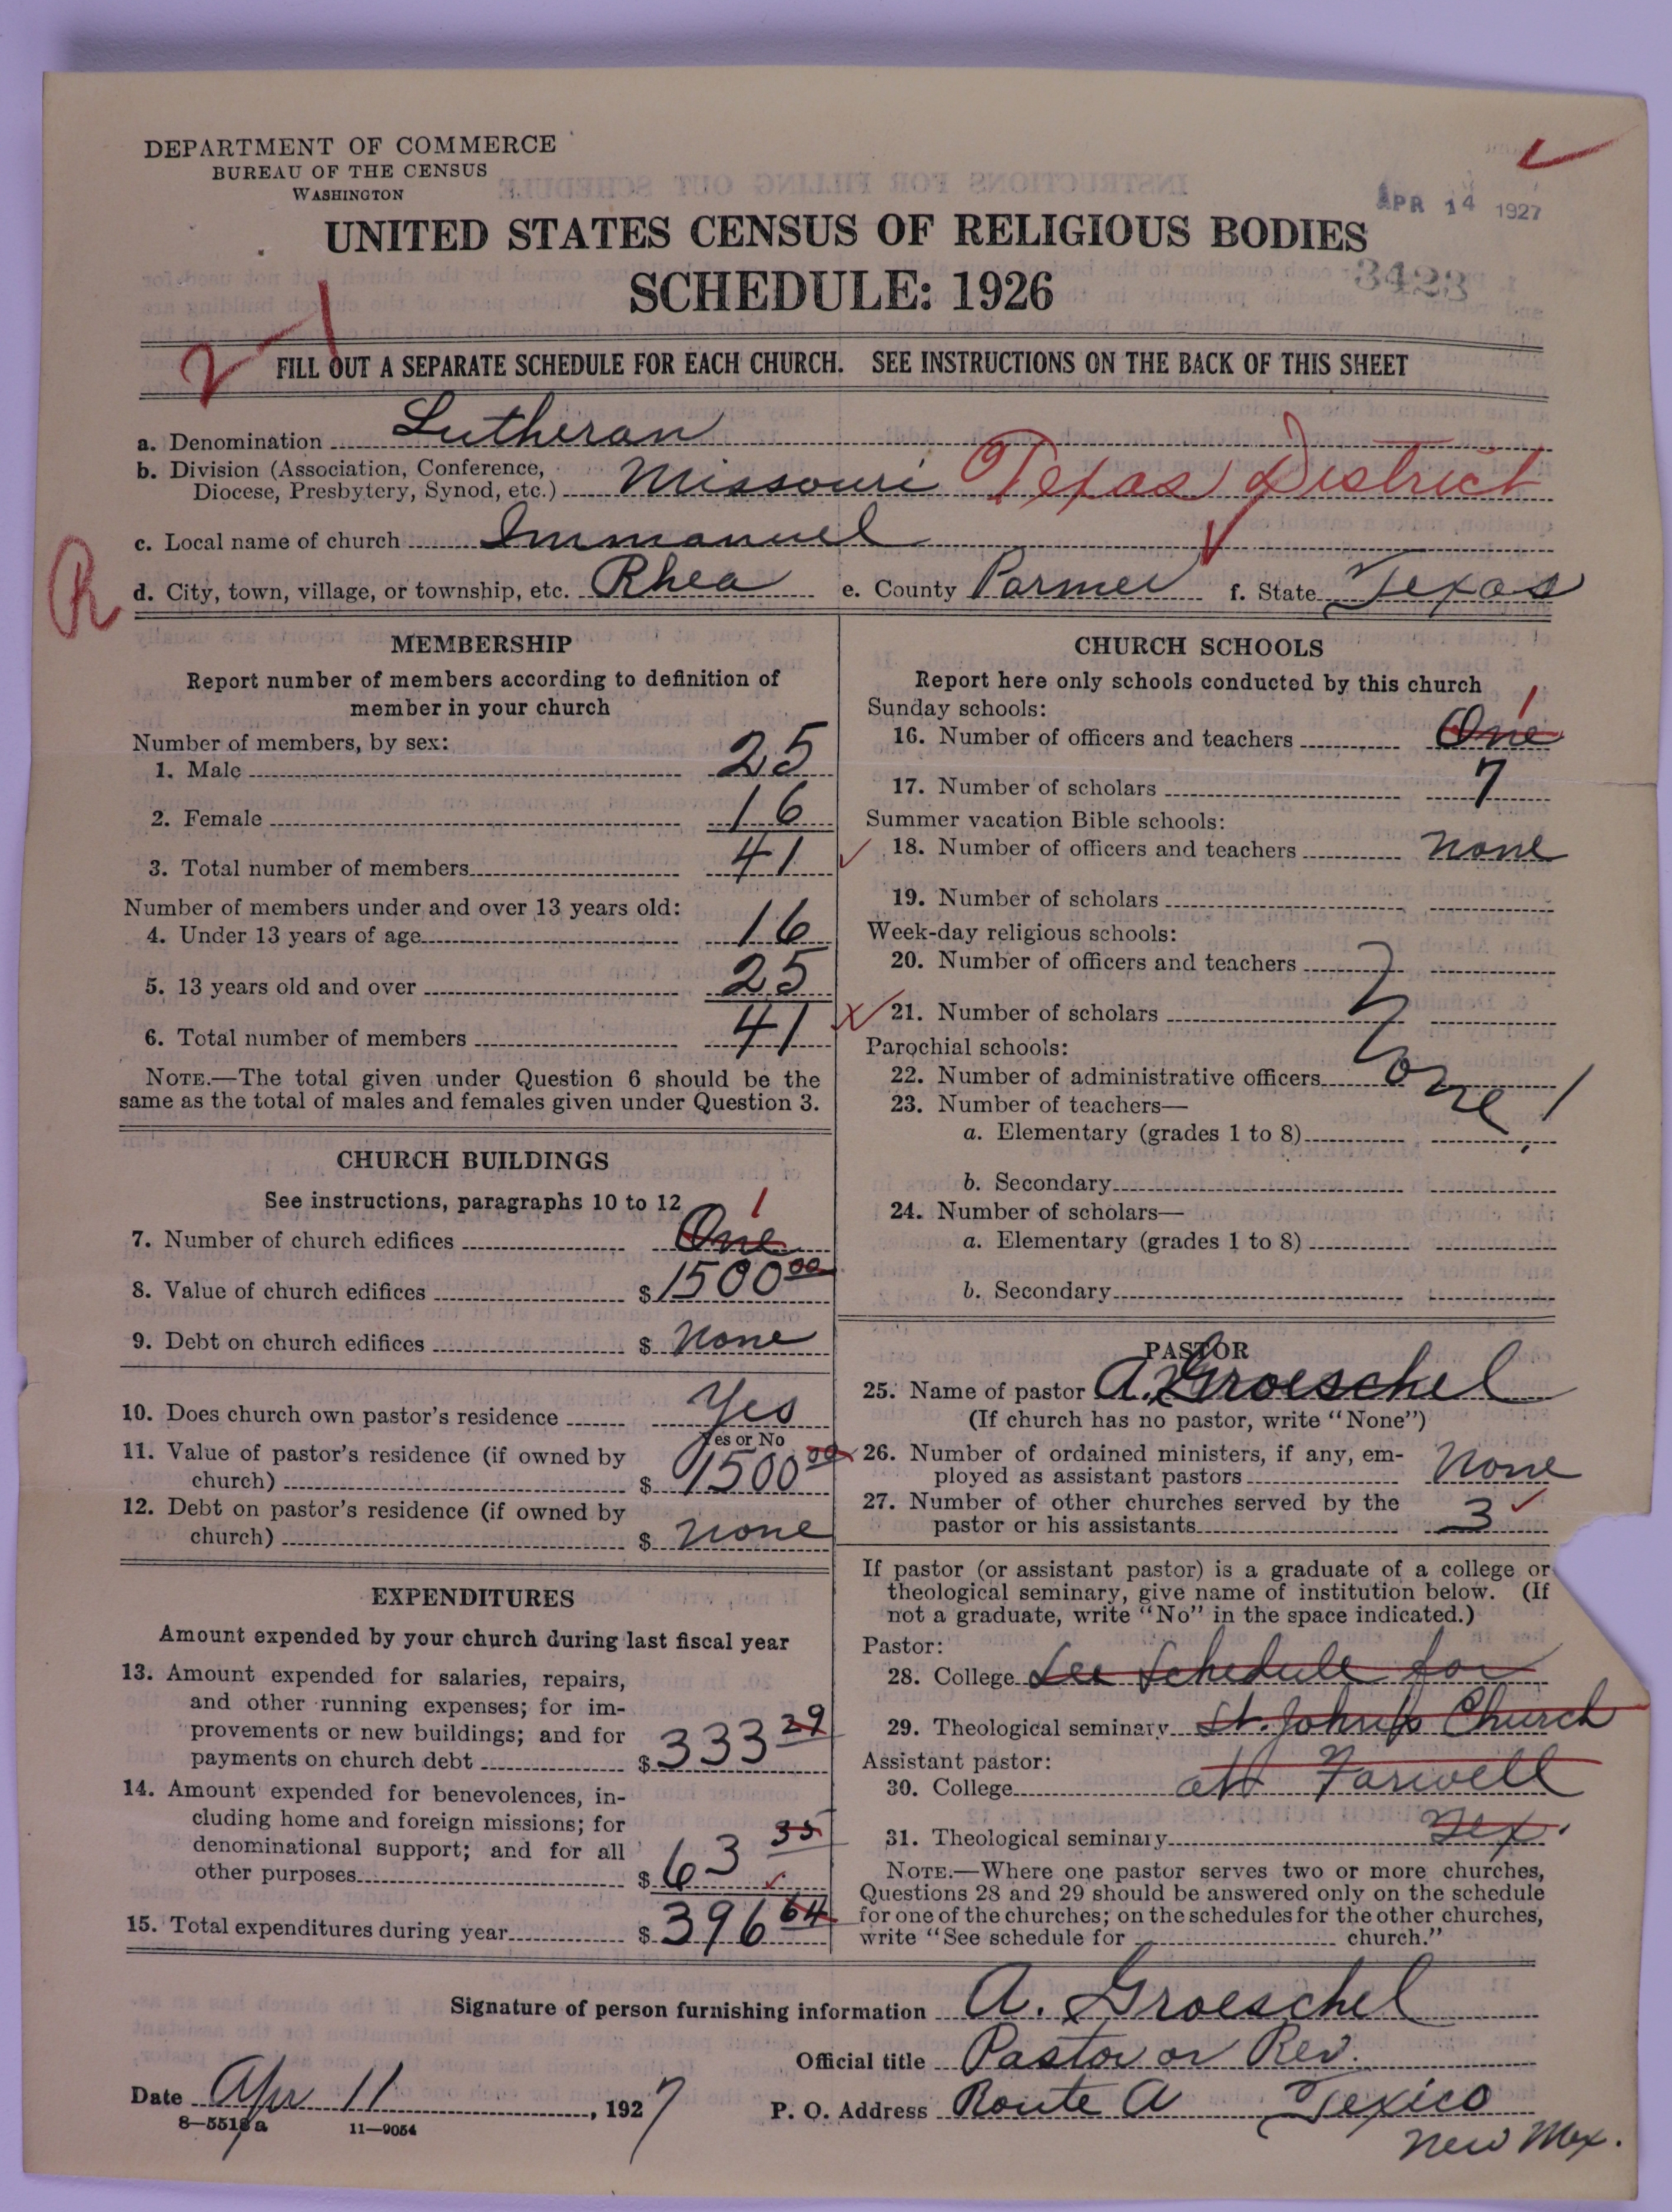 DEPARTMENT OF COMMERCE
BUREAU OF THE CENSUS
WASHINGTON
APR 14 1927
UNITED STATES CENSUS OF RELIGIOUS BODIES
SCHEDULE: 1926
3423
FILL OUT A SEPARATE SCHEDULE FOR EACH CHURCH. SEE INSTRUCTIONS ON THE BACK OF THIS SHEET
a. Denomination Lutheran
b. Division (Association, Conference,
Diocese, Presbytery, Synod, etc.) Missouri Texas District
c. Local name of church Immanuel
R
d. City, town, village, or township, etc. Rhea e. County Parmer f. State Texas
MEMBERSHIP
Report number of members according to definition of
member in your church
Number of members, by sex:
1. Male 25
2. Female 16
3. Total number of members 41
Number of members under and over 13 years old:
4. Under 13 years of age 16
5. 13 years old and over 25
6. Total number of members 41
NOTE.—The total given under Question 6 should be the
same as the total of males and females given under Question 3.
CHURCH BUILDINGS
See instructions, paragraphs 10 to 12
7. Number of church edifices One 1
8. Value of church edifices $ 1500 00
9. Debt on church edifices $ None
10. Does church own pastor's residence Yes
Yes or No
11. Value of pastor's residence (if owned by
church) $ 1500 00
12. Debt on pastor's residence (if owned by
church) $ none
EXPENDITURES
Amount expended by your church during last fiscal year
13. Amount expended for salaries, repairs,
and other running expenses; for im-
provements or new buildings; and for
payments on church debt $ 333 29
14. Amount expended for benevolences, in-
cluding home and foreign missions; for
denominational support; and for all
other purposes $ 63 35
15. Total expenditures during year $ 396 64
CHURCH SCHOOLS
Report here only schools conducted by this church
Sunday schools:
16. Number of officers and teachers One 1
17. Number of scholars 7
Summer vacation Bible schools:
18. Number of officers and teachers None
19. Number of scholars
Week-day religious schools:
20. Number of officers and teachers
21. Number of scholars
Parochial schools:
22. Number of administrative officers
None
23. Number of teachers—
a. Elementary (grades 1 to 8)
b. Secondary
24. Number of scholars—
a. Elementary (grades 1 to 8)
b. Secondary
PASTOR
25. Name of pastor A. Groeschel
(If church has no pastor, write "None")
26. Number of ordained ministers, if any, em-
ployed as assistant pastors None
27. Number of other churches served by the
pastor or his assistants 3
If pastor (or assistant pastor) is a graduate of a college or
theological seminary, give name of institution below. (If
not a graduate, write "No" in the space indicated.)
Pastor:
28. College See Schedule for
29. Theological seminary St. John's Church
Assistant pastor:
30. College at Farwell
31. Theological seminary Tex.
NOTE.—Where one pastor serves two or more churches,
Questions 28 and 29 should be answered only on the schedule
for one of the churches; on the schedules for the other churches,
write "See schedule for church."
Signature of person furnishing information A. Groeschel
Official title Pastor or Rev.
Date Apr 11, 1927
P. O. Address Route A Texico
New Mex.
8-5518a 11-9054